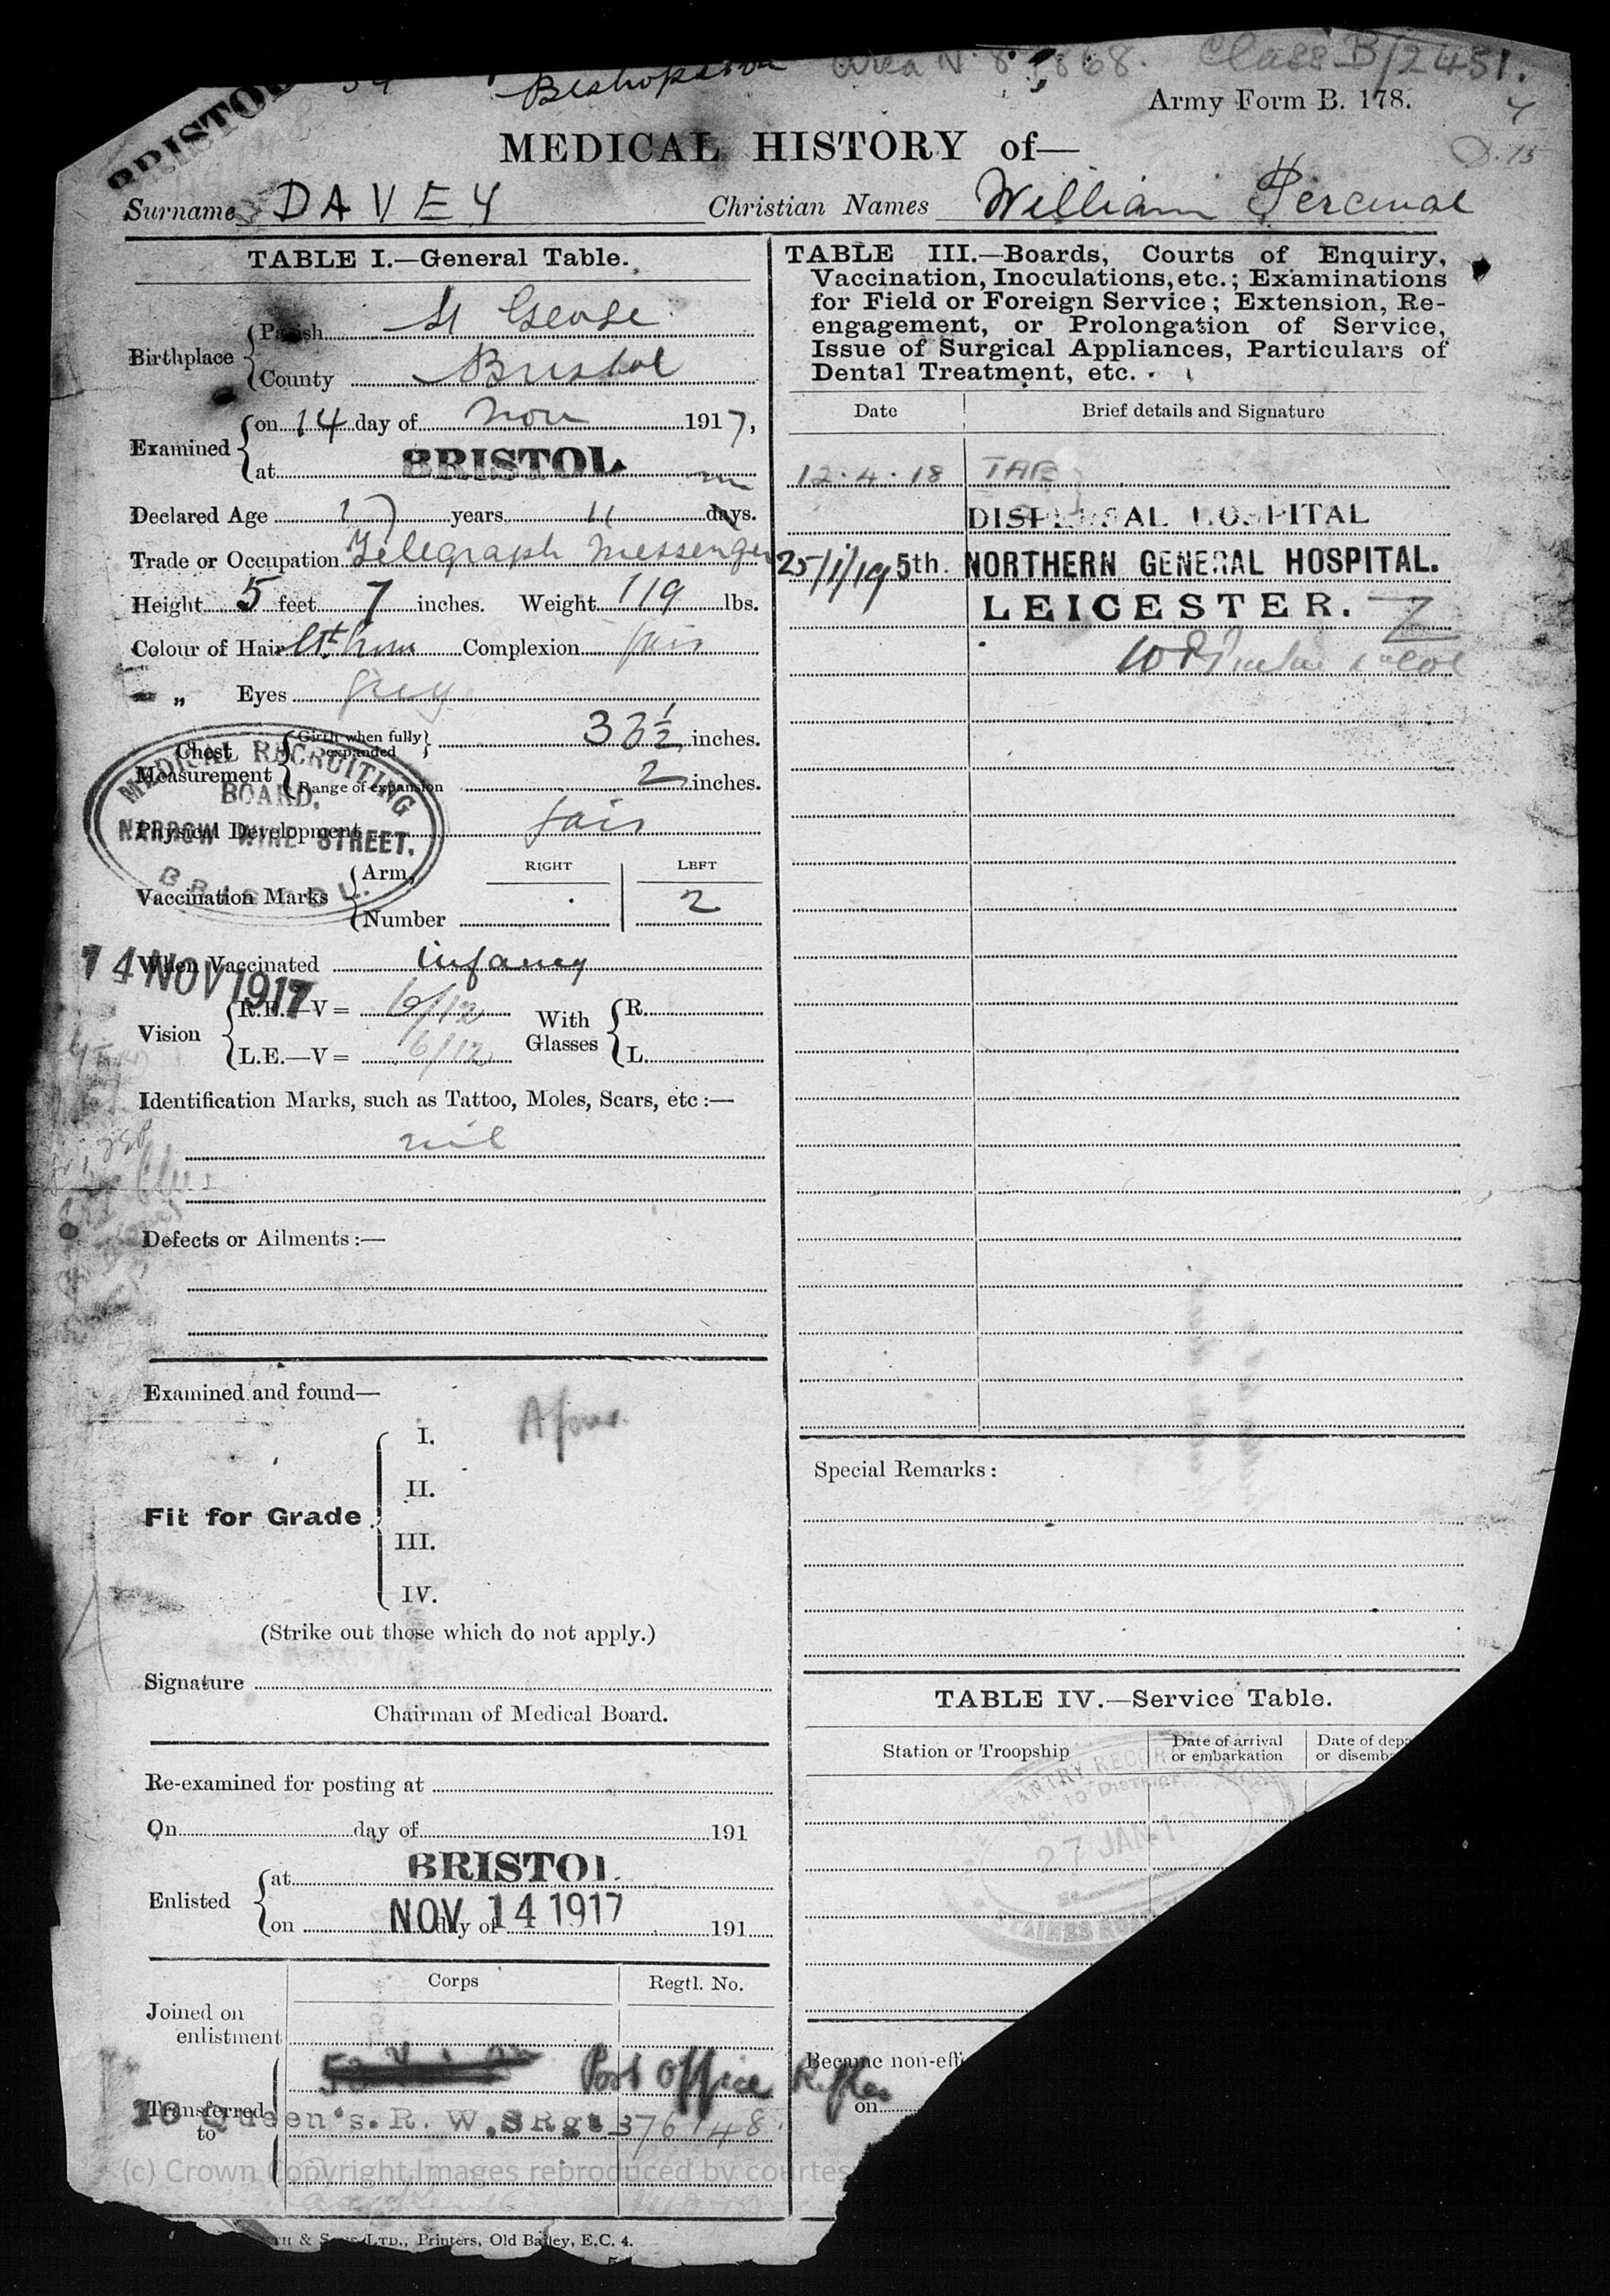 BRISTOL
Bishopston Area No 8 868. Class B/2451.
Army Form B. 178.
MEDICAL HISTORY of—
Surname DAVEY Christian Names William Percival
TABLE I.—General Table.
Birthplace { Parish St George
County Bristol
Examined { on 14 day of Nov 1917,
at BRISTOL
Declared Age 17 years 11 days.
Trade or Occupation Telegraph Messenger
Height 5 feet 7 inches. Weight 119 lbs.
Colour of Hair Complexion fair
„ Eyes grey
Chest Measurement { Girth when fully expanded 33½ inches.
Range of expansion 2 inches.
MEDICAL RECRUITING
BOARD,
NARROW WINE STREET.
BRISTOL.
Physical Development fair
Vaccination Marks { Arm, RIGHT LEFT
Number 2
When Vaccinated infancy
14 NOV 1917
Vision { R.E.—V = 6/12 With Glasses { R.
L.E.—V = 6/12 L.
Identification Marks, such as Tattoo, Moles, Scars, etc :—
nil
Defects or Ailments :—
Examined and found—
A
Fit for Grade { I.
II.
III.
IV.
(Strike out those which do not apply.)
Signature
Chairman of Medical Board.
Re-examined for posting at
On day of 191
Enlisted { at BRISTOL
on NOV 14 1917 day of 191
Corps Regtl. No.
Joined on
enlistment
Post Office Rifles
Transferred
to
10 Queen's. R. W. S Rgt 376148
(c) Crown Copyright Images reproduced by courtes
& Sons LTD., Printers, Old Bailey, E.C. 4.
TABLE III.—Boards, Courts of Enquiry,
Vaccination, Inoculations, etc. ; Examinations
for Field or Foreign Service ; Extension, Re-
engagement, or Prolongation of Service,
Issue of Surgical Appliances, Particulars of
Dental Treatment, etc.
Date Brief details and Signature
12.4.18 TAB
DISPERSAL HOSPITAL
25/1/19 5th. NORTHERN GENERAL HOSPITAL.
LEICESTER.
Special Remarks :
TABLE IV.—Service Table.
Station or Troopship Date of arrival or embarkation Date of depa
or disemba
INFANTRY RECORD
No. 10 DISTRICT
27 JAN 19
Became non-effic
on